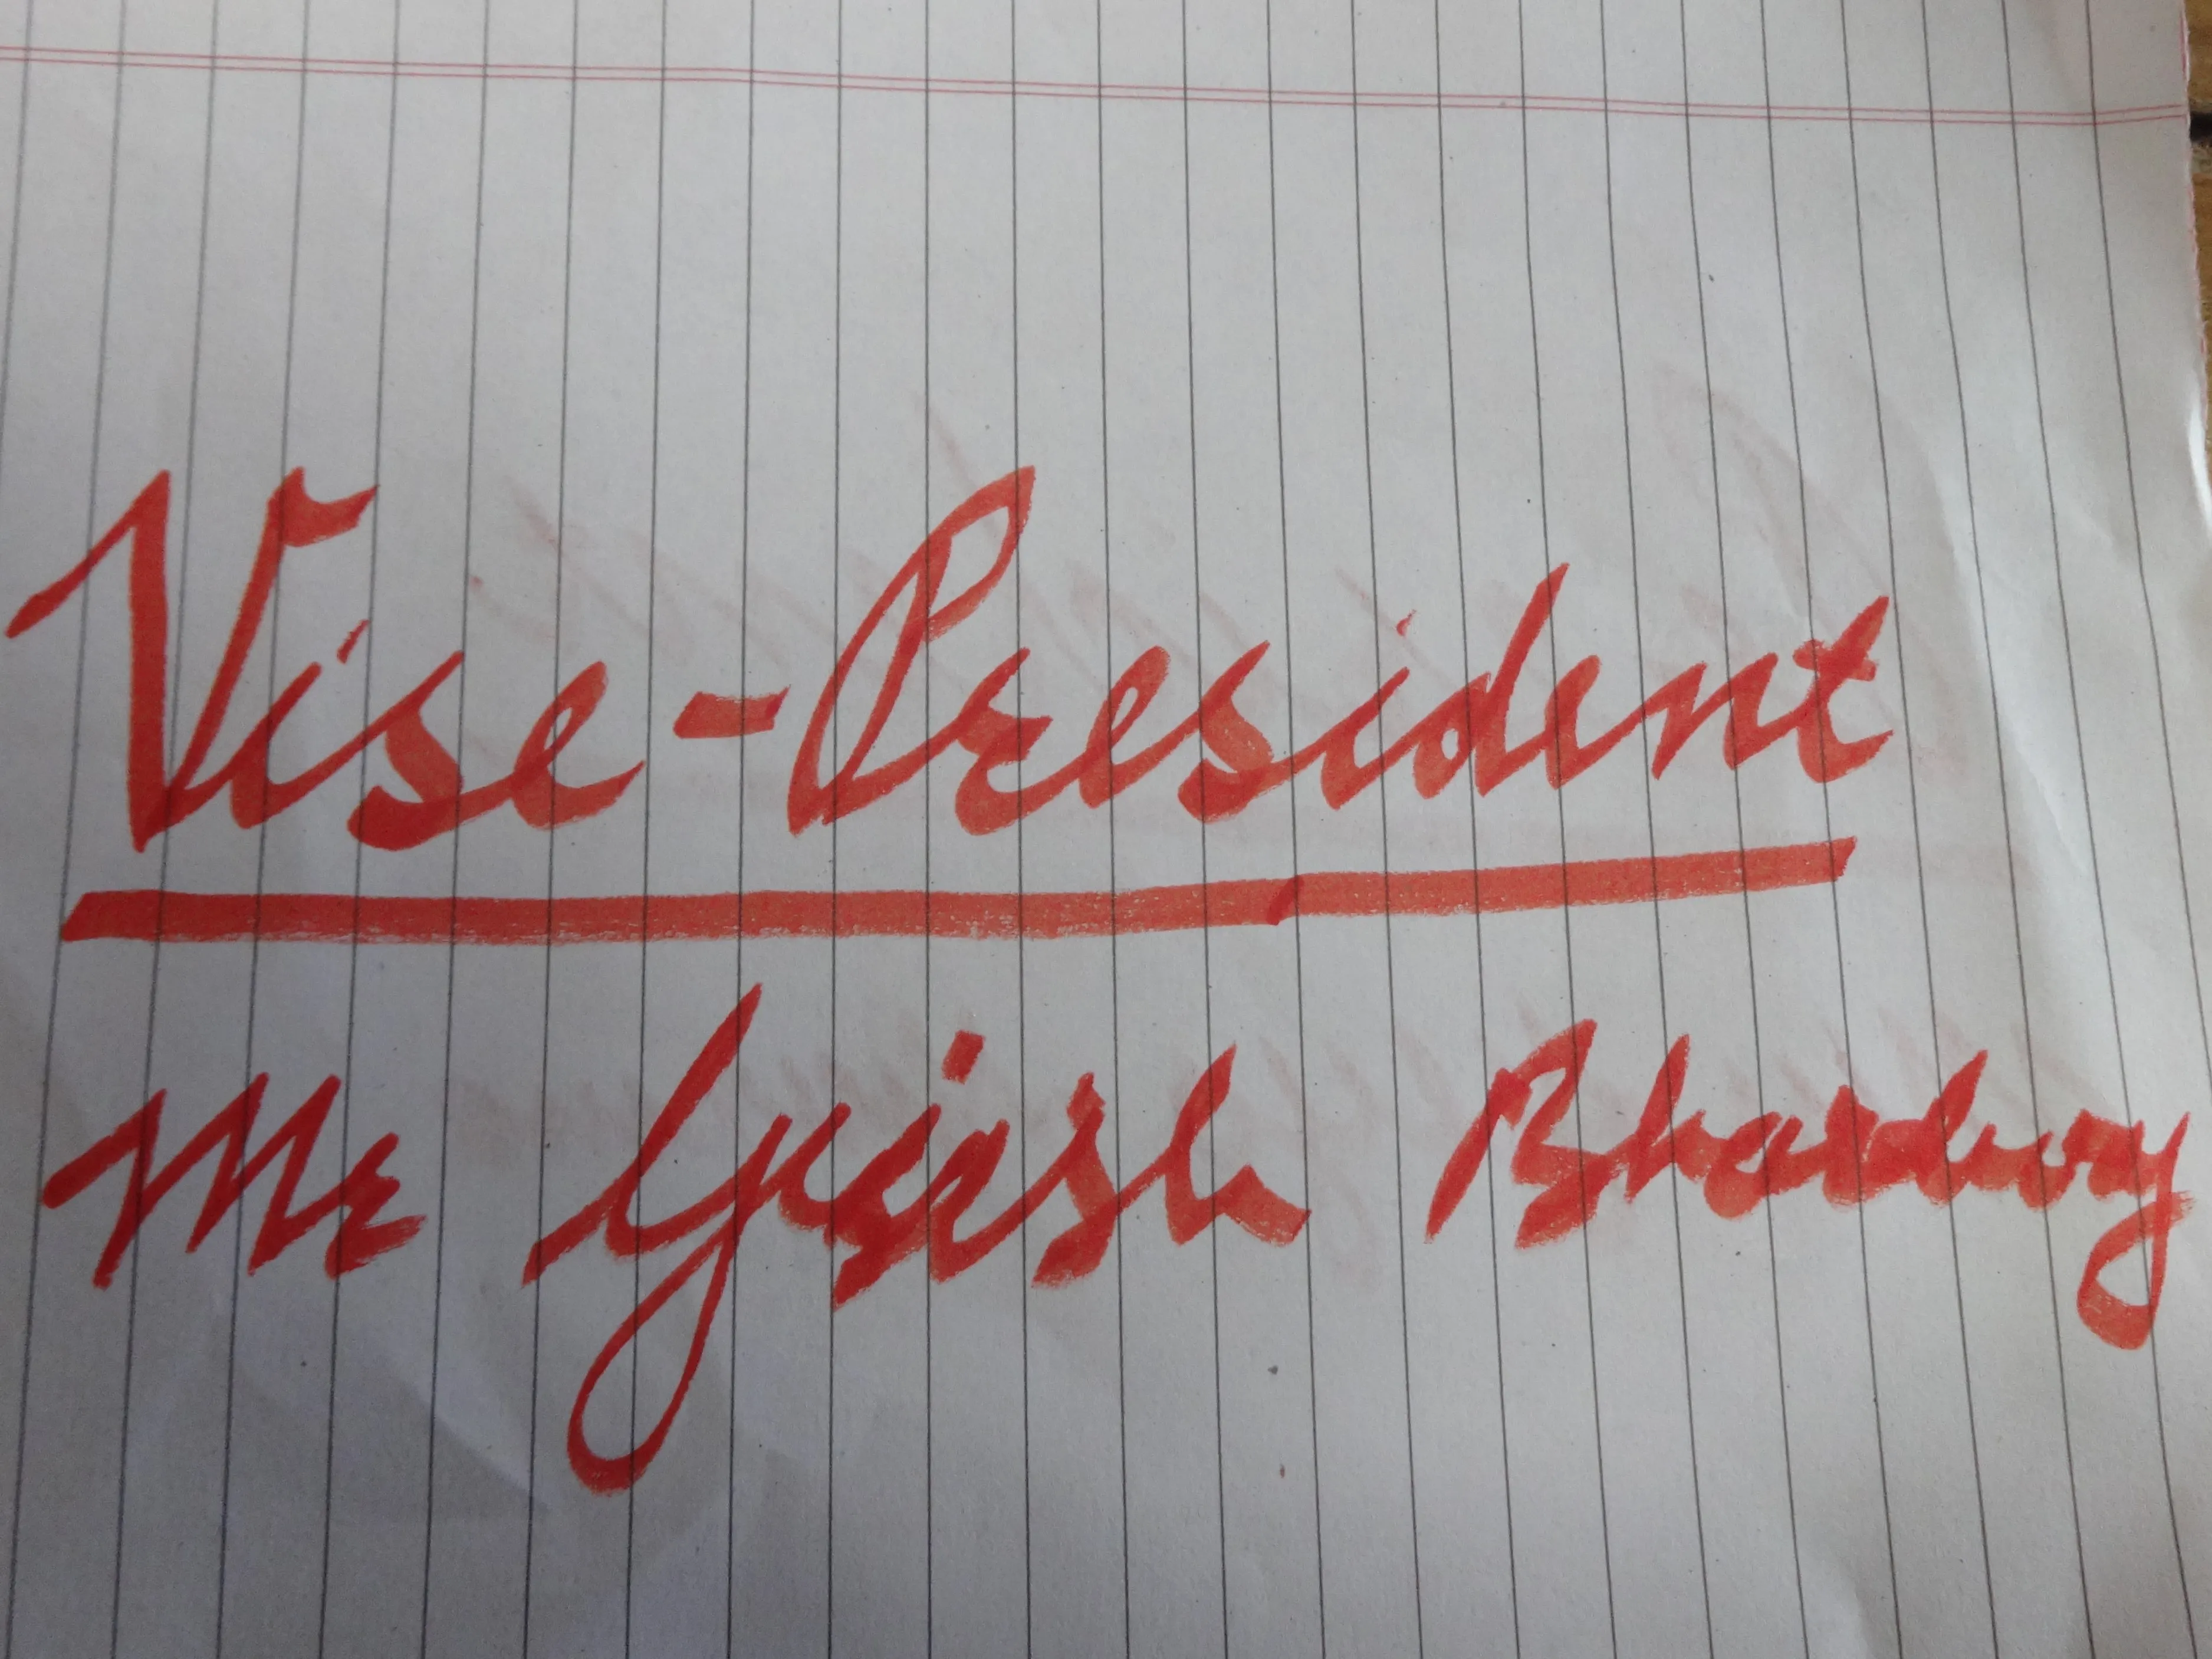 Vise-President
Mr Girish Bhardwaj